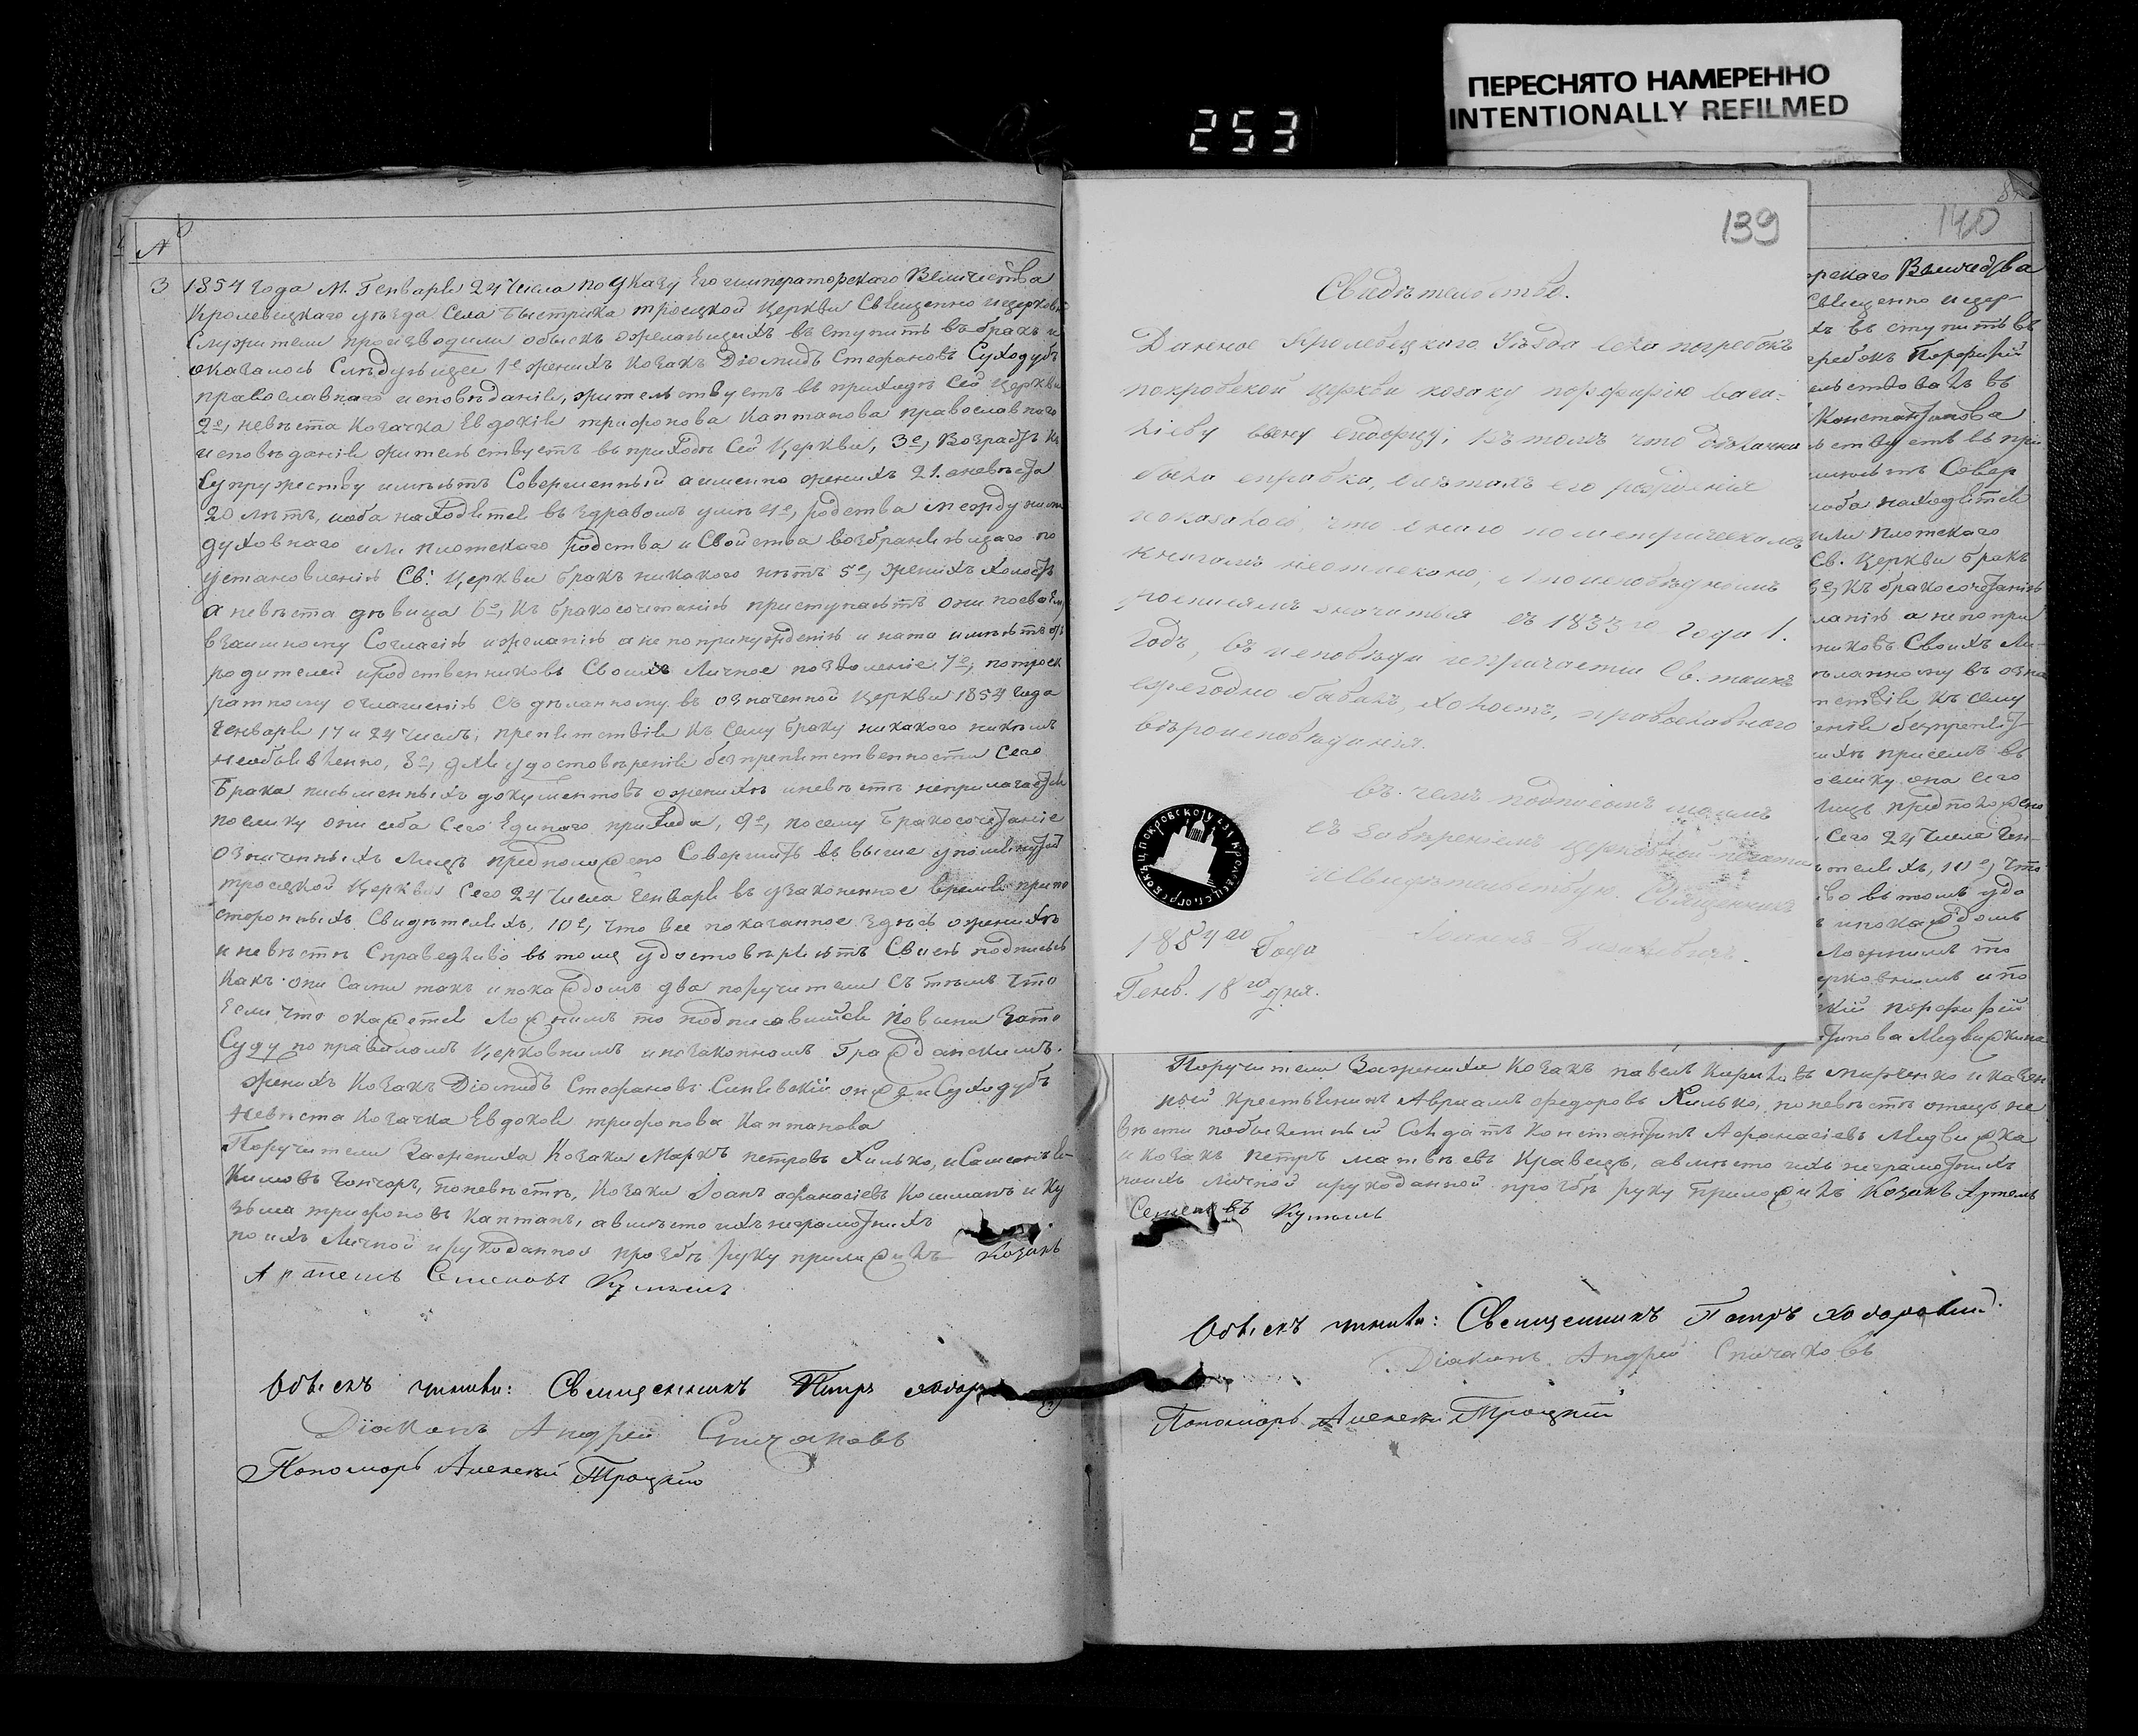 ПЕРЕСНЯТО НАМЕРЕННО
INTENTIONALLY REFILMED
253
№
3
1854 года М. Генваря 24 числа по Указу Его императорскаго Величества
Кролевецкаго уезда Села Быстрика троицкой Церкви Священно ицерковно
Служители производили обыскъ ожелающихъ вступить въ бракъ и
оказалось Следующее 1е женихъ Козакъ Діомидъ Стефановъ Суходубъ
православнаго исповѣданія, жительствуетъ въ приходѣ Сей Церкви
2е, невѣста Козачка Евдокія трифонова Каптанова православнаго
исповѣданія жительствуетъ въ приходѣ Сей Церкви, 3е, Возрастъ къ
Супружеству имѣютъ Совершенный а именно женихъ 21. аневѣста
20 лѣтъ, иоба находятся въ здравомъ умѣ 4е, родства между ними
духовнаго или плотскаго родства и Свойства возбраняющаго по
установленію Св: Церкви бракъ никакого нѣтъ 5е, женихъ холостъ
а невѣста дѣвица 6е, Къ бракосочетанію приступаютъ они по своему
взаимному Согласію ижеланію а не по принужденію и на то имѣютъ отъ
родителей иродственниковъ Своихъ Личное позволеніе 7е, по трое
ратному оглашенію Сдѣланному въ означенной Церкви 1854 года
Генваря 17 и 24 числъ; препятствія Къ Сему браку никакого никѣмъ
необъявленно, 8е, для удостовѣренія безпрепятственности Сего
Брака письменныхъ документовъ оженихѣ иневѣстѣ неприлагается
поелику они оба Сего Единаго прихода, 9е, посему Бракосочетаніе
Означенныхъ Лицъ предположено Совершить въ выше упомянутой
троицкой Церкви Сего 24 числа Генваря въ узаконенное время при по
стороннихъ Свидѣтеляхъ, 10е, что все показанное здѣсь оженихѣ
и невѣстѣ Справедливо въ томъ удостовѣряютъ Своею подписью
Какъ они Сами такъ ипокаждомъ два поручителя Съ тѣмъ что
Если что окажется Ложнымъ то подписавшіися повинны зато
Суду по правиламъ Церковнымъ ипозаконамъ Гражданскимъ.
женихъ Козакъ Діомидъ Стефановъ Синявскій онже и Суходубъ
Невѣста Козачка Евдокія трифонова Каптанова
Поручители Зажениха Козаки Маркъ петровъ Хилько, и
Гончаръ, Поневѣстѣ, Козаки Іоанъ афанасіевъ Кошманъ и Ку
зьма трифоновъ Каптанъ, авмѣсто ихъ неграмотныхъ
по ихъ Личной ирукоданной прозбѣ руку приложилъ Козакъ
Артемъ Семеновъ
Обыскъ чинили: Священникъ Петръ
Діаконъ Андрей Спичаковъ
Пономарь Алексей Троцкій
139
Свидѣтельство.
Данное Кролевецкаго Уѣзда села погребокъ
покровской церкви козаку порфирію васи=
ліеву сыну въ томъ что
была справка, о лѣтахъ его рожденія
показалось, что онаго по метрическимъ
книгамъ неотыскано, а по исповѣднымъ
росписямъ значиться съ 1833го года 1.
Годъ, въ исповѣди ипричастіи Св. таинъ
ежегодно бывалъ, холостъ, православнаго
вѣроисповѣданія.
въ чемъ подписомъ моимъ
съ завѣреніемъ церковной печати
и свидѣтельствую. Священникъ
1854го Года
Генв. 18го дня.
140
рскаго Величества
Священно ицер-
хъ вступить въ
гребокъ Порфирій
ельствовалъ въ
Константинова
льствуетъ въ при
имѣютъ Совер
иоба находятся
или плотскаго
Св. Церкви бракъ
6е, Къ бракосочетанію
ланію а не по при
никовъ Своихъ Ли-
ѣланному въ озна
тствія Къ Сему
енія безпрепят
ихъ присемъ въ
оелику она Сего
Лицъ предположено
Сего 24 числа Ген-
ѣтеляхъ, 10е, что
во въ томъ удо
ъ ипокаждомъ
Ложнымъ то
рковнымъ и по
кій порфирій
тинова Медвидкина
Поручители Зажениха Козакъ павелъ Кириловъ марченко и казен
ный крестьянинъ Авраамъ федоровъ Хилько, поневѣстѣ отецъ не
вѣсты Солдатъ Константинъ Афанасіевъ Медвидка
и козакъ петръ матвѣевъ Кравецъ, авмѣсто ихъ неграмотныхъ
поихъ личной ирукоданной прозбѣ руку приложилъ Козакъ Артемъ
Семеновъ
Обыскъ чинили: Священникъ Петръ Ходоровскій.
Діаконъ Андрей Спичаковъ
Пономарь Алексей Троцкій